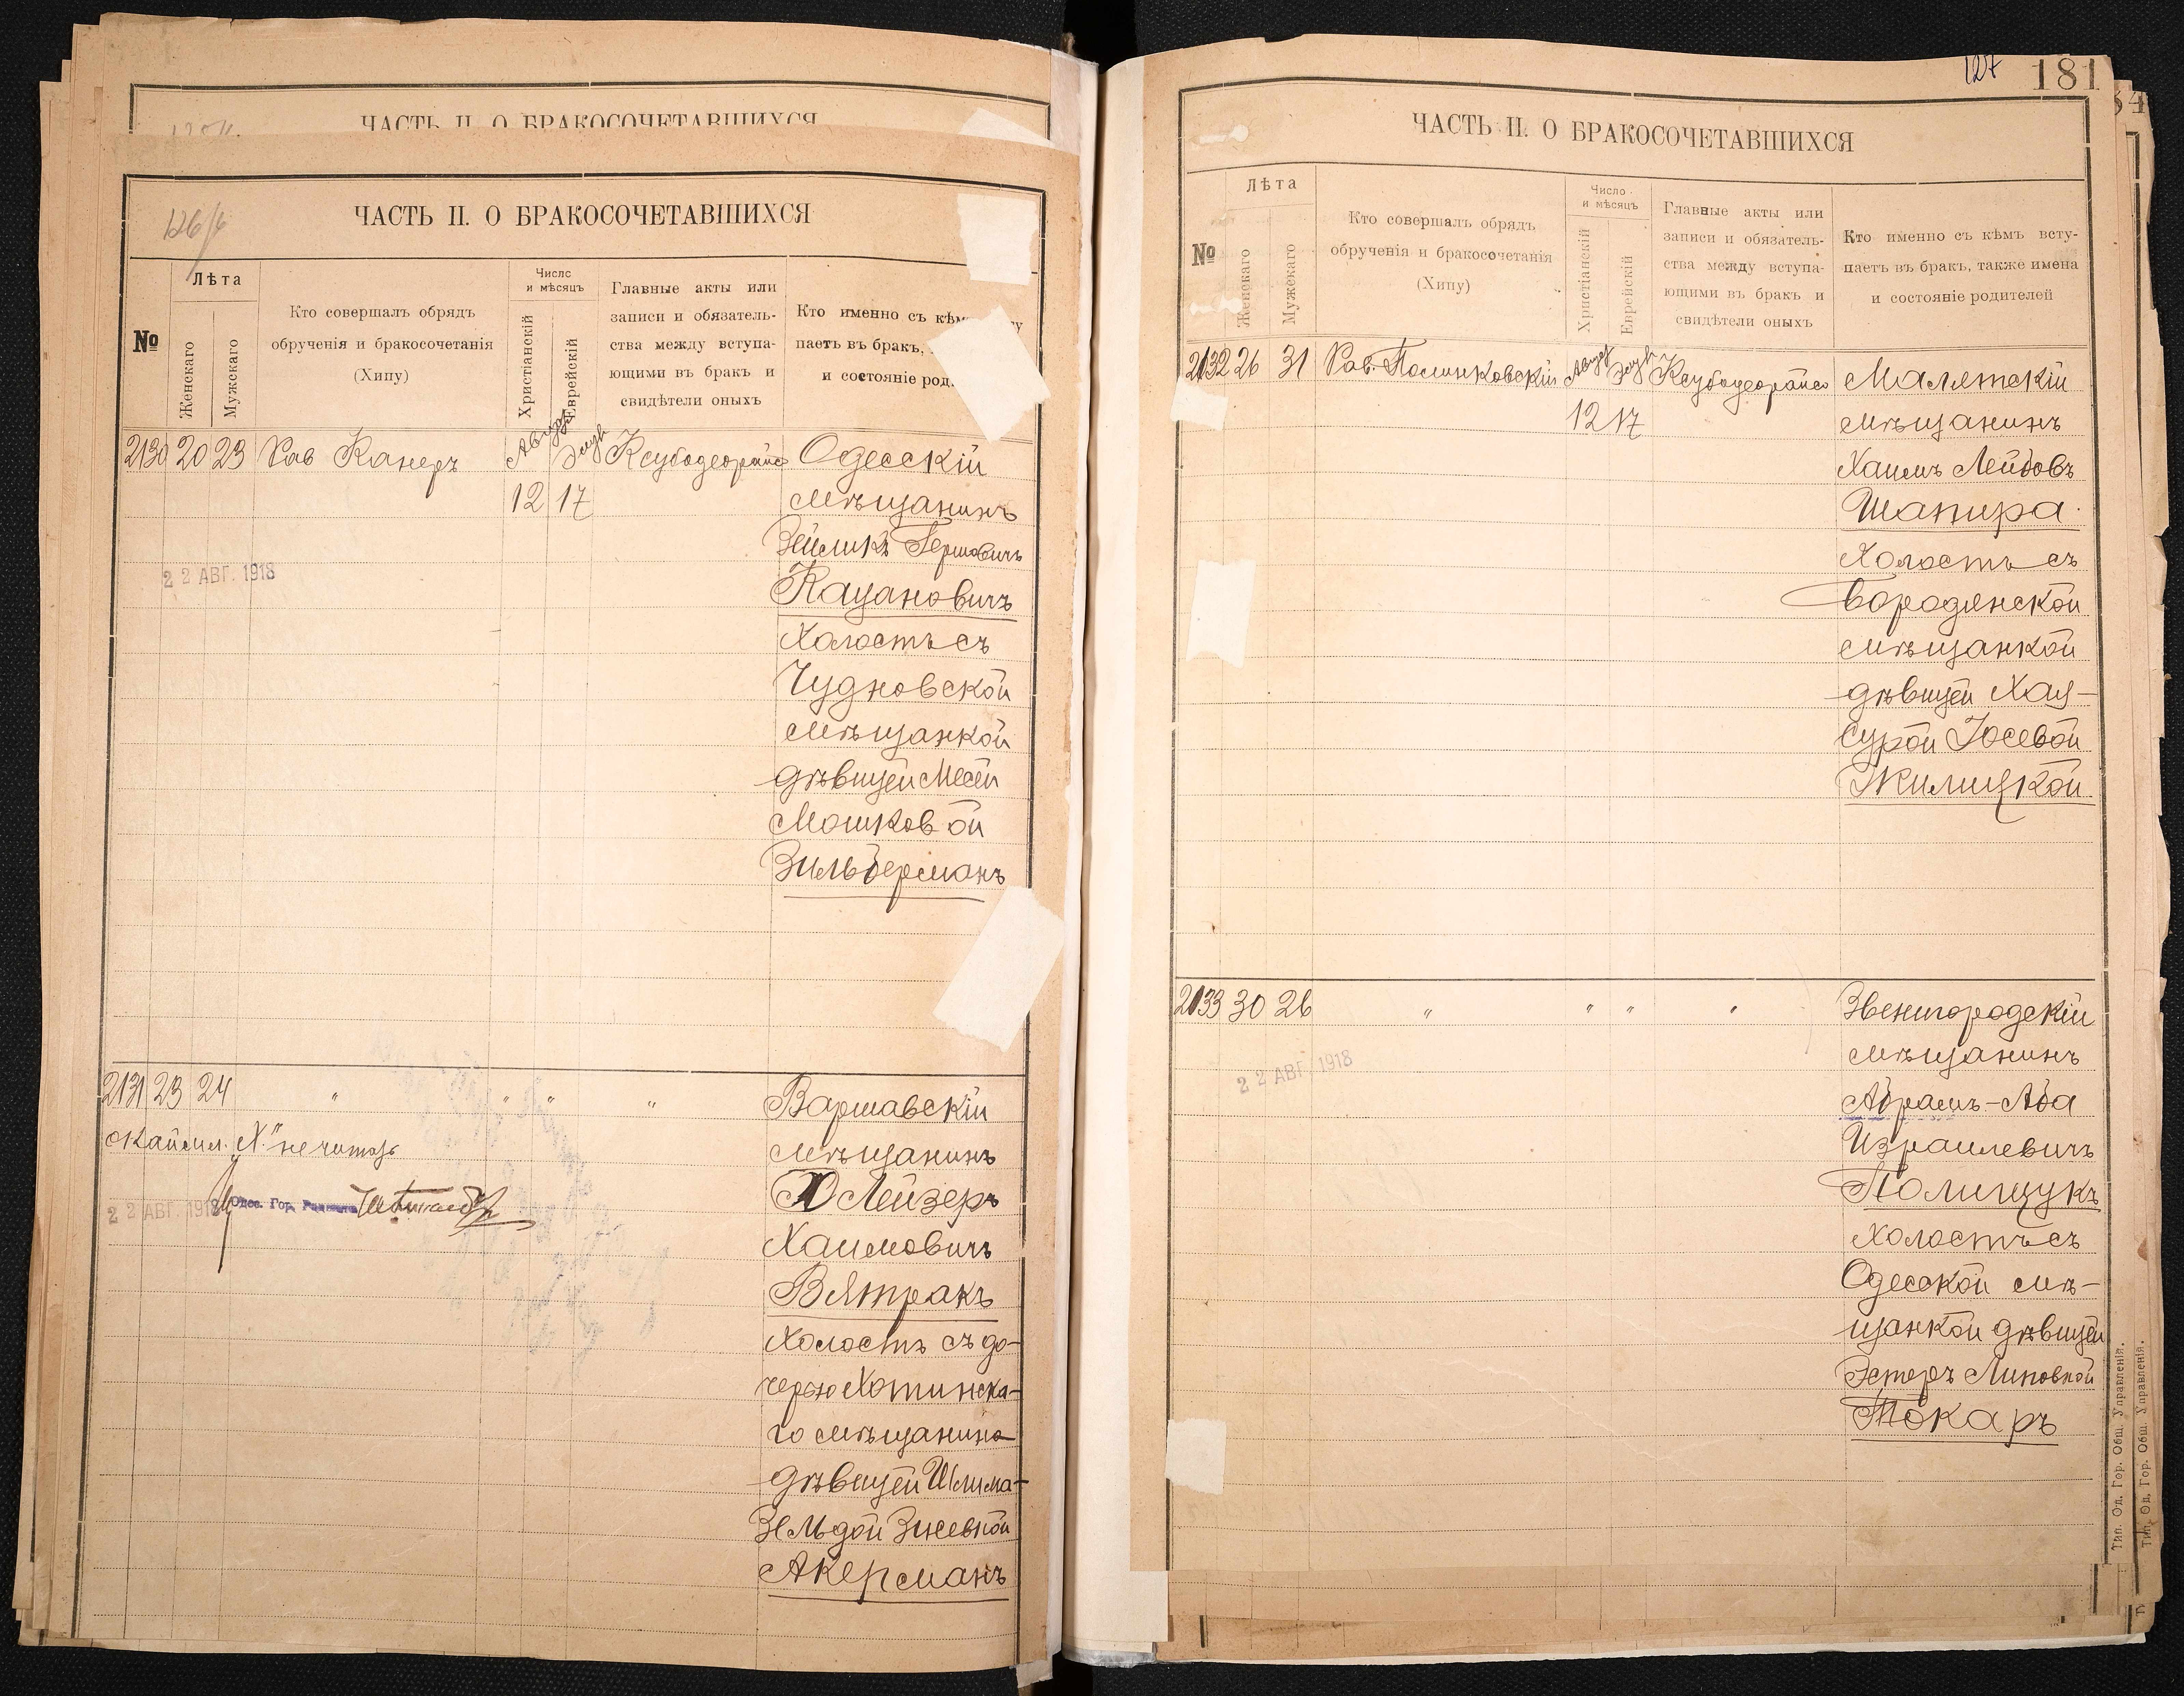 ЧАСТЬ II. О БРАКОСОЧЕТАВШИХСЯ
126/
ЧАСТЬ II. О БРАКОСОЧЕТАВШИХСЯ
№
Лѣта
Женскаго
Мужскаго
Кто совершалъ обрядъ
обрученія и бракосочетанія
(Хипу)
Число
и мѣсяцъ
Христіанскій
Еврейскій
Главные акты или
записи и обязатель-
ства между вступа-
ющими въ бракъ и
свидѣтели оныхъ
Кто именно съ кѣм
паетъ въ бракъ,
и состояніе род
2130 20 23 Рав Канеръ Авгу Элул Ксубодеорайсо Одесскій
12 17 мѣщанинъ
Зейликъ Гершовичъ
22 АВГ. 1918
Кацановичъ
Холостъ съ
Чудновской
мѣщанкой
дѣвицей Месей
Мошковой
Зильберманъ
2131 23 24 " " " " Варшавскій
окаймл. "Х" не читать мѣщанинъ
22 АВГ. 1918 Одес. Гор. Раввинъ
Лейзеръ
Хаимовичъ
Вятракъ
Холостъ съ до-
черью Хотинска-
го мѣщанина
дѣвицей Шлима-
Зельдой Зусевной
Акерманъ
127 181
34
ЧАСТЬ II. О БРАКОСОЧЕТАВШИХСЯ
№
Лѣта
Женскаго
Мужескаго
Кто совершалъ обрядъ
обрученія и бракосочетанія
(Хипу)
Число
и мѣсяцъ
Христіанскій
Еврейскій
Главные акты или
записи и обязатель-
ства между вступа-
ющими въ бракъ и
свидѣтели оныхъ
Кто именно съ кѣмъ всту-
паетъ въ бракъ, также имена
и состояніе родителей
2132 26 31 Рав. Полинковскій Авгу Элул Ксубодеорайсо Малятскій
12 17 мѣщанинъ
Хаимъ Лейбовъ
Шапира
Холостъ съ
Бородянской
мѣщанкой
дѣвицей Хая-
Сурой Іосевой
Жилицкой
2133 30 26 " " " " Звенигородскій
мѣщанинъ
22 АВГ. 1918
Абрамъ-Аба
Израилевичъ
Полищукъ
Холостъ съ
Одесской мѣ-
щанкой дѣвицей
Эстеръ Липовной
Токаръ
Тип. Од. Гор. Общ. Управленія.
Тип. Од. Гор. Общ. Управленія.